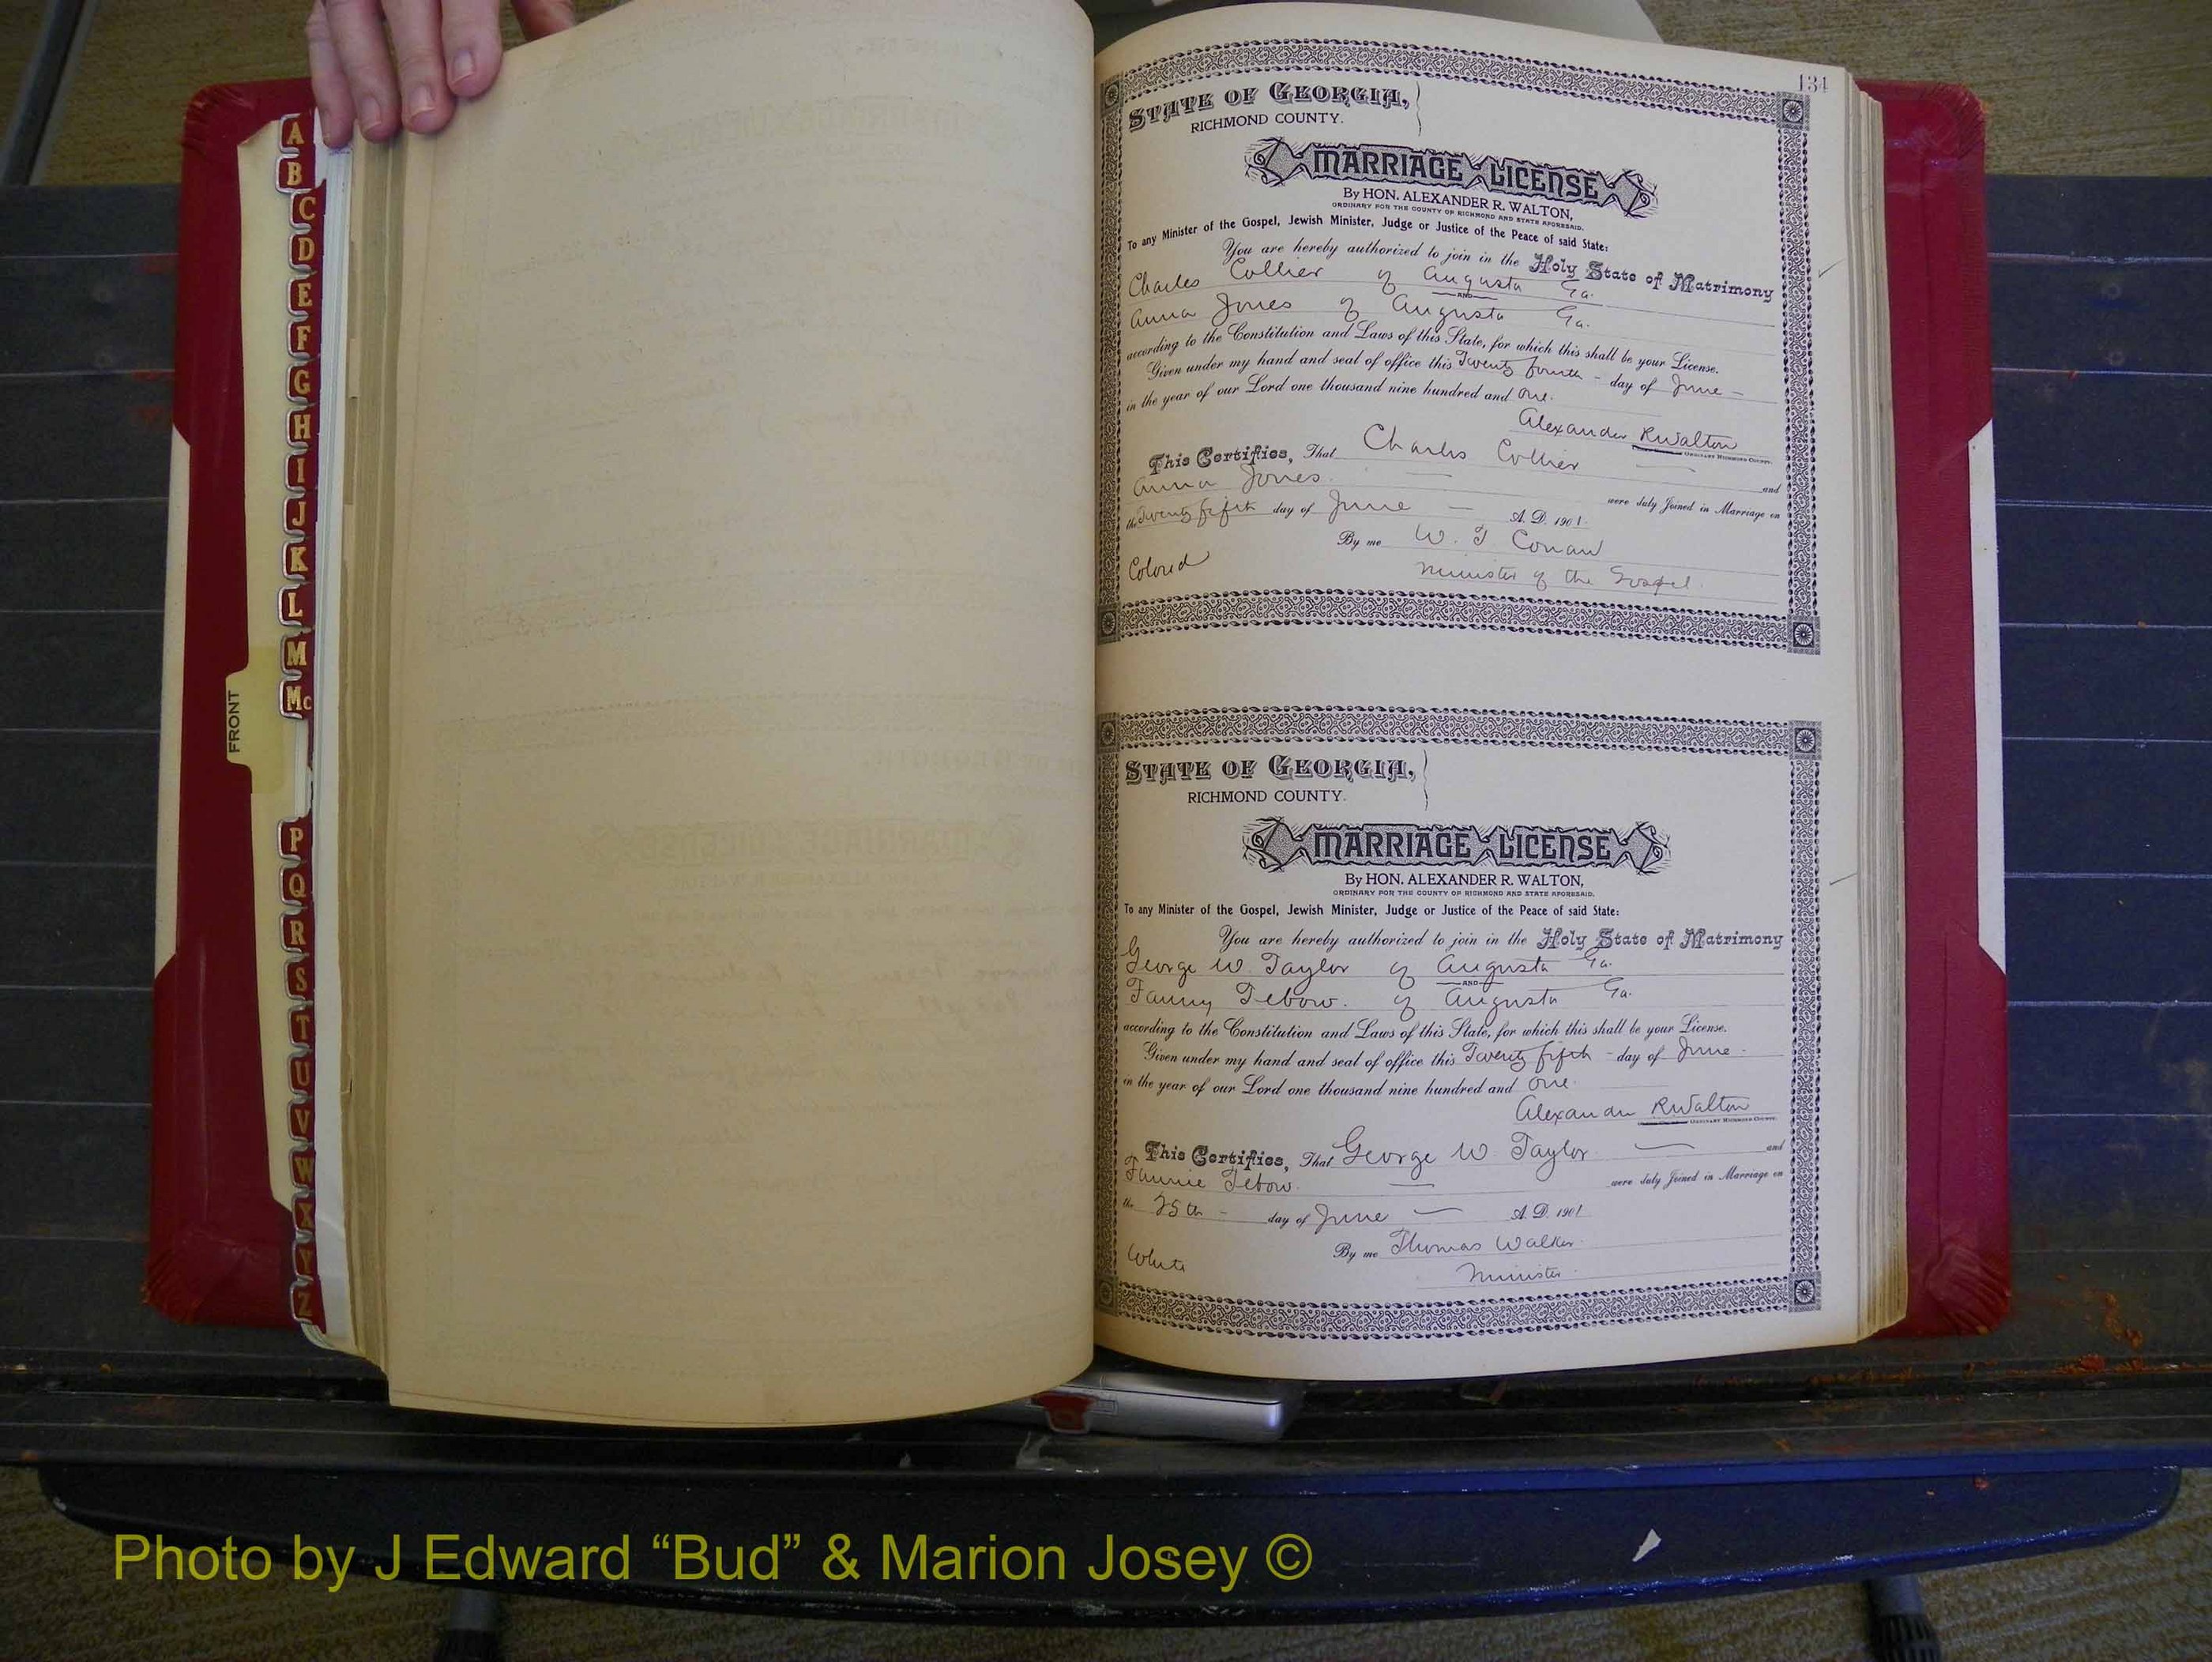 A
B
C
D
E
F
G
H
I
J
K
L
M
Mc
FRONT
P
Q
R
S
T
U
V
W
X
Y
Z
134
STATE OF GEORGIA,
RICHMOND COUNTY.
MARRIAGE LICENSE
By HON. ALEXANDER R. WALTON,
ORDINARY FOR THE COUNTY OF RICHMOND AND STATE AFORESAID.
To any Minister of the Gospel, Jewish Minister, Judge or Justice of the Peace of said State:
You are hereby authorized to join in the Holy State of Matrimony
Charles Collier of Augusta Ga.
AND
Anna Jones of Augusta Ga.
according to the Constitution and Laws of this State, for which this shall be your License.
Given under my hand and seal of office this Twenty fourth - day of June -
in the year of our Lord one thousand nine hundred and One.
Alexander R Walton
ORDINARY RICHMOND COUNTY.
This Certifies, That Charles Collier
Anna Jones. and
were duly Joined in Marriage on
the Twenty fifth day of June — A. D. 1901.
By me W. T Conaw
Colored Minister of the Gospel.
STATE OF GEORGIA,
RICHMOND COUNTY.
MARRIAGE LICENSE
By HON. ALEXANDER R. WALTON,
ORDINARY FOR THE COUNTY OF RICHMOND AND STATE AFORESAID.
To any Minister of the Gospel, Jewish Minister, Judge or Justice of the Peace of said State:
You are hereby authorized to join in the Holy State of Matrimony
George W. Taylor of Augusta Ga.
AND
Fanny Tebow. of Augusta Ga.
according to the Constitution and Laws of this State, for which this shall be your License.
Given under my hand and seal of office this Twenty fifth - day of June -
in the year of our Lord one thousand nine hundred and One.
Alexander R Walton
ORDINARY RICHMOND COUNTY.
This Certifies, That George W Taylor — and
Fannie Tebow. — were duly Joined in Marriage on
the 25th - day of June — A. D. 1901
By me Thomas Walker.
White Minister.
Photo by J Edward “Bud” & Marion Josey ©